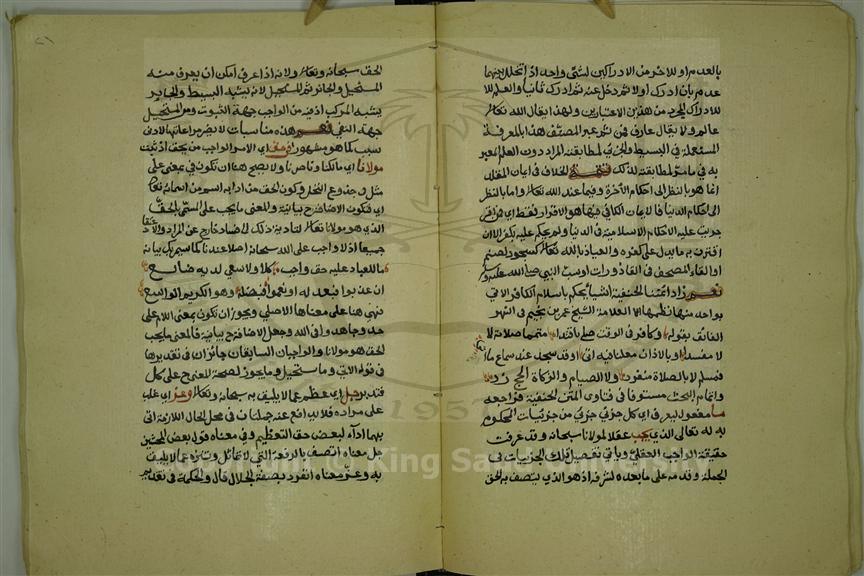 بالعدم او للاخر من الادراكين لشئ واحد اذا تخلل بينهما
عدم بان ادرك اولا ثم ذهل عنه ثم ادرك ثانيا والعلم للا
دراك المجرد من هذين الاعتبارين ولهذا يقال الله تعالى
عالم ولا يقال عارف فمن ثم عبر المصنف هنا بالمعرفة
المستعملة في البسيط والجزئ لمطابقته المراد دون العلم المعبر
به في ما مر لمطابقته لذلك تتمة الخلاف في ايمان المقلد
انما هو بالنظر الى احكام الآخرة وفيما عند الله تعالى واما بالنظر
الى احكام الدنيا فالايمان الكافي فيها هو الاقرار فقط اي فمن اقر
جرت عليه الاحكام الاسلامية في الدنيا ولم يحكم عليه بكفر الا ان
اقترن به ما يدل على كفره والعياذ بالله تعالى كسجود لصنم
او القاء المصحف في القاذورات او سب النبي صلى الله عليه وسلم
نعم زاد ائمتنا الحنفية اشياء يحكم باسلام الكافر الاتي
بواحد منها نظمها العلامة الشيخ عمر بن نجيم في النهر
الفائق بقوله وكافر في الوقت صلى باقتدا متمما صلاته لا
مفسدا او بالاذان معلنا فيه اتى او قد سجد عند سماع ما اتى
فمسلم لا بالصلاة منفرد ولا الصيام والزكاة الحج زد
واتمام البحث مستوفا في فتاوى المتن الحنفية فراجعه
ما مفعول ليعرف اي كل جزئي جزئي من جزئيات المحكوم
به له تعالى الذي يجب عقلا لمولانا سبحانه وقد عرفت
حقيقة الواجب العقلي وياتي تفصيل تلك الجزئيات في
الجملة وقدمه على ما بعده لشرفه اذ هو الذي يتصف به الحق
الحق سبحانه وتعالى ولانه اذا عرف امكن ان يعرف منه
المستحيل والجائز ثم المستحيل لانه يشبه البسيط والجائز
يشبه المركب اذ فيه من الواجب جهة الثبوت ومن المستحيل
جهة النفي نعم هذه مناسبات لا يضر مراعاتها لادنى
سبب كما هو مشهور في حق اي الامر الواجب من يحق اذ ثبت
مولانا اي مالكنا وناصرنا ولا يصح هنا ان تكون في بمعنى على
مثل في جذوع النخل وكون الحق مرادا به اسم من اسمائه تعالى
اي فتكون الاضافة بيانية والمعنى ما يجب على المسمى بالحق
الذي هو مولانا تعالى لتادية ذلك الى فساد خارج عن المراد والاعتقاد
جميعا اذ لا واجب على الله سبحانه اصلا عندنا كما سيمر بك بيانه
ما للعباد عليه حق واجب كلا ولا سعي لديه ضائع
ان عذبوا فبعدله او نعموا فبفضله وهو الكريم الواسع
فهي هنا على معناها الاصلي ويجوز ان تكون بمعنى اللام على
حد وجاهدوا في الله وجعل الاضافة بيانية فالمعنى ما يجب
للحق هو مولانا والواجبان السابقان جائزان في تقديرها
في قوله الاتي وما يستحيل وما يجوز لصحة المعنى على كل
فتدبر جل اي عظم عما لا يليق به سبحانه وتعالى وعز اي غلب
على مراده فلا يدافع عنه جملتان في محل الحال اللازمة اتى
بهما اداء لبعض حق التعظيم وفي معناه قول بعض المحققين
جل معناه اتصف بالرفعة التي لا تماثل وتنزه عما لا يليق
به وعز معناه انفرد بصفة الجلال قال والحكمة في تقديم
Copyright © King Saud University
1957